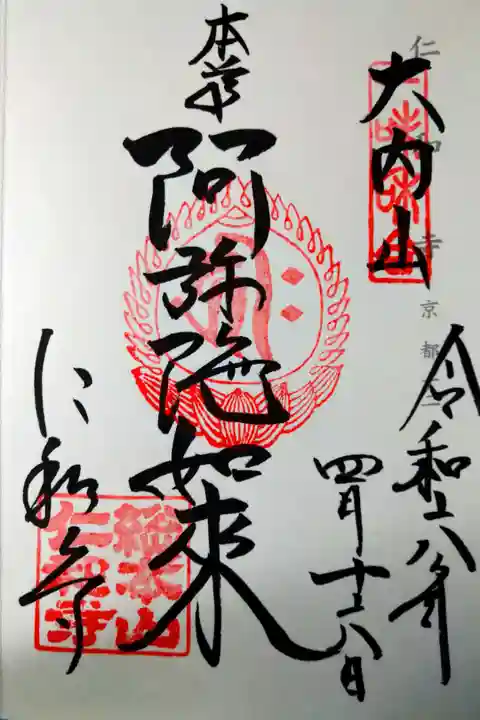 仁和寺 京都
大内山
令和六年
四月十六日
本尊
阿弥陀如來
仁和寺
総本山
仁和寺